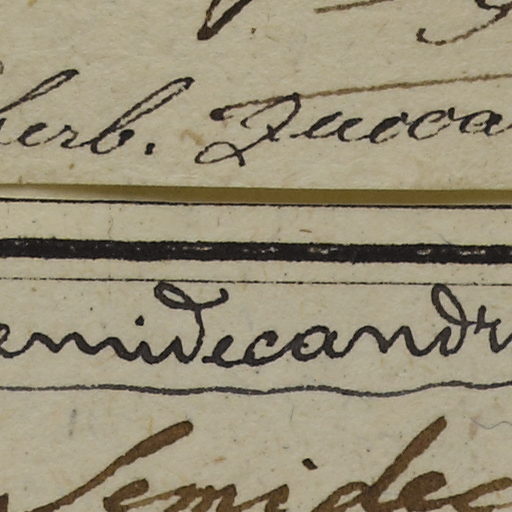 herb. Zucca
emidecandr
Semidec